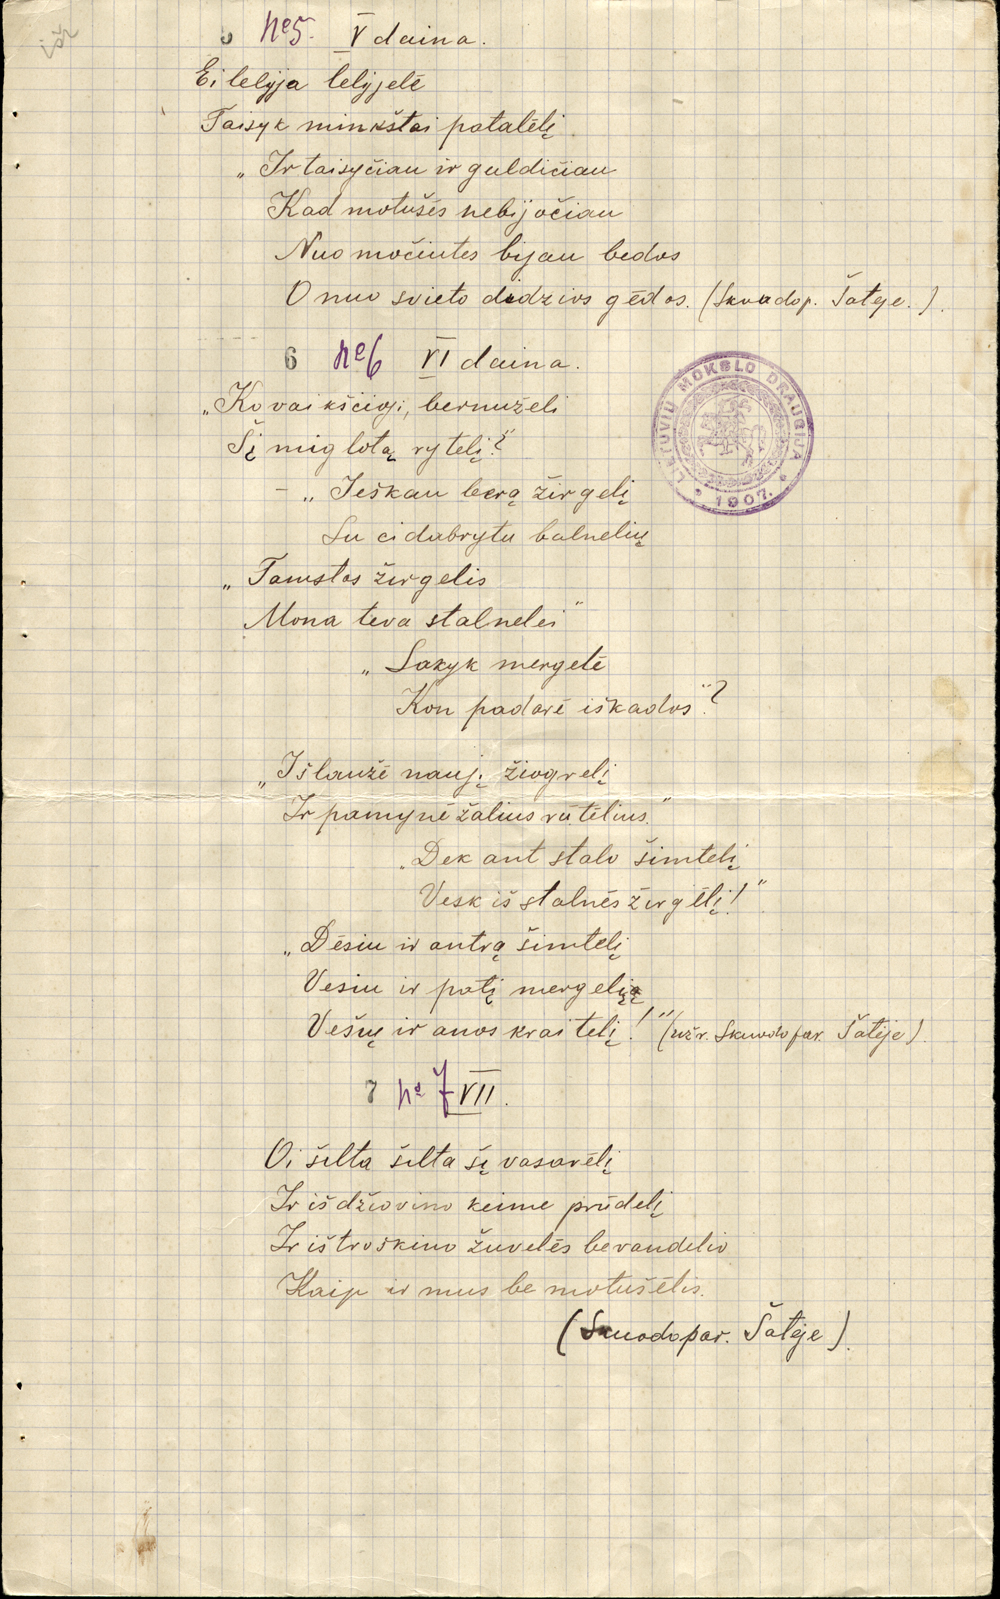 5 № 5. V daina.
Ei lelyja lelyjelė
Taisyk minkštai patalėlį
„Ir taisyčiau ir guldičiau
Kad motušės nebijočiau
Nuo močiutes bijau bedos
O nuo svieto didzios gėdos. (Skuodo p. Šatėje.).
6 № 6 VI daina.
„Ko vaikščioji, bernuželi
Šį miglotą rytelį?"
– „Ieškau berą žirgelį
Su cidabrytu balnelių
„Tamstos žirgelis
Mona teva stalnelei"
„Sakyk mergelė
Kon padarė iškados"?
„Išlaužė naujį žiogrelį
Ir pamynė žalius rūtėlius."
„Dek ant stalo šimtelį
Vesk iš stalnės žirgėlį!"
„Dėsiu ir antrą šimtelį
Vesiu ir patį mergelią
Vešių ir anos kraitelį!" (užr. Skuodo par. Šatėje).
7 № 7 VII.
Oi šilta šilta šį vasarėlį
Ir išdžiovino keime prūdelį
Ir ištroškino žuvelės bevandelio
Kaip ir mus be motušėlis.
(Skuodo par. Šatėje).
LIETUVIŲ MOKSLO DRAUGIJA
1907.